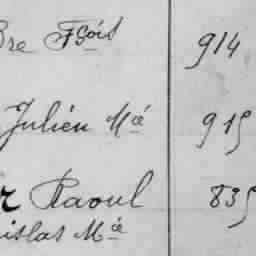 Bre Fçois 914
Julien Mie 919
r Raoul 835
nislas Mie